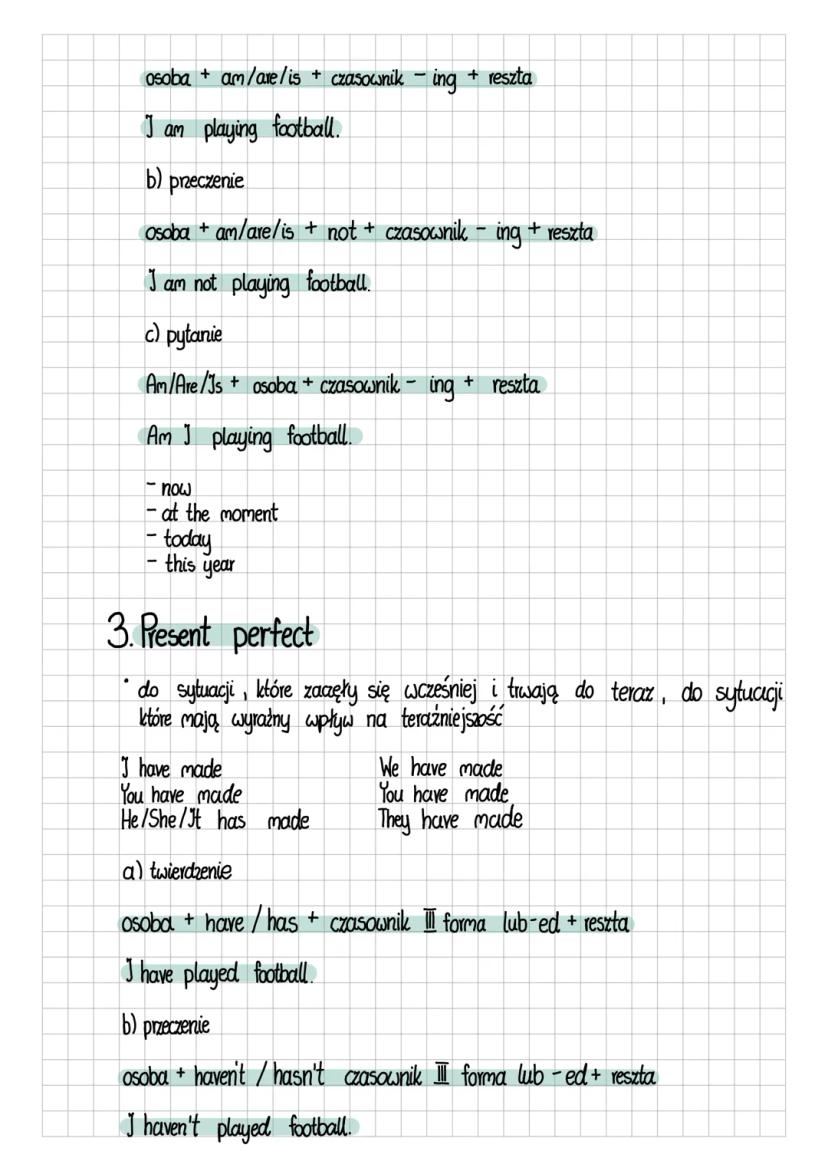 osoba + am/are/is + czasownik - ing + reszta
I am playing football.
b) przeczenie
osoba + am/are/is + not + czasownik - ing + reszta
I am not playing football.
c) pytanie
Am/Are/Is + osoba + czasownik - ing + reszta
Am I playing football.
- now
- at the moment
- today
- this year
3. Present perfect
• do sytuacji, które zaczęły się wcześniej i trwają do teraz, do sytuacji
które mają wyraźny wpływ na teraźniejszość
I have made We have made
You have made You have made
He/She/It has made They have made
a) twierdzenie
osoba + have / has + czasownik III forma lub -ed + reszta
I have played football.
b) przeczenie
osoba + haven't / hasn't czasownik III forma lub -ed + reszta
I haven't played football.